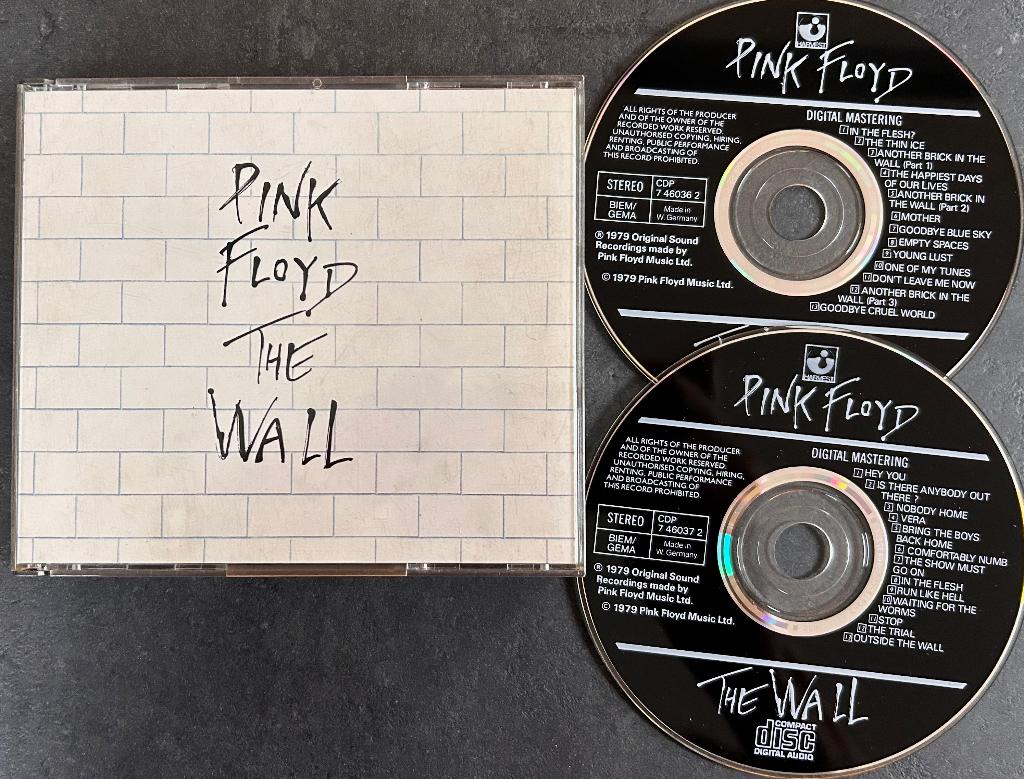 PINK
FLOYD
THE
WALL
HARVEST
PINK FLOYD
DIGITAL MASTERING
ALL RIGHTS OF THE PRODUCER
AND OF THE OWNER OF THE
RECORDED WORK RESERVED.
UNAUTHORISED COPYING, HIRING,
RENTING, PUBLIC PERFORMANCE
AND BROADCASTING OF
THIS RECORD PROHIBITED.
STEREO
CDP
7 46036 2
BIEM/
GEMA
Made in
W. Germany
℗ 1979 Original Sound
Recordings made by
Pink Floyd Music Ltd.
© 1979 Pink Floyd Music Ltd.
1 IN THE FLESH?
2 THE THIN ICE
3 ANOTHER BRICK IN THE
WALL (Part 1)
4 THE HAPPIEST DAYS
OF OUR LIVES
5 ANOTHER BRICK IN
THE WALL (Part 2)
6 MOTHER
7 GOODBYE BLUE SKY
8 EMPTY SPACES
9 YOUNG LUST
10 ONE OF MY TUNES
11 DON'T LEAVE ME NOW
12 ANOTHER BRICK IN THE
WALL (Part 3)
13 GOODBYE CRUEL WORLD
HARVEST
PINK FLOYD
DIGITAL MASTERING
ALL RIGHTS OF THE PRODUCER
AND OF THE OWNER OF THE
RECORDED WORK RESERVED.
UNAUTHORISED COPYING, HIRING,
RENTING, PUBLIC PERFORMANCE
AND BROADCASTING OF
THIS RECORD PROHIBITED.
STEREO
CDP
7 46037 2
BIEM/
GEMA
Made in
W. Germany
℗ 1979 Original Sound
Recordings made by
Pink Floyd Music Ltd.
© 1979 Pink Floyd Music Ltd.
1 HEY YOU
2 IS THERE ANYBODY OUT
THERE ?
3 NOBODY HOME
4 VERA
5 BRING THE BOYS
BACK HOME
6 COMFORTABLY NUMB
7 THE SHOW MUST
GO ON
8 IN THE FLESH
9 RUN LIKE HELL
10 WAITING FOR THE
WORMS
11 STOP
12 THE TRIAL
13 OUTSIDE THE WALL
THE WALL
COMPACT
disc
DIGITAL AUDIO